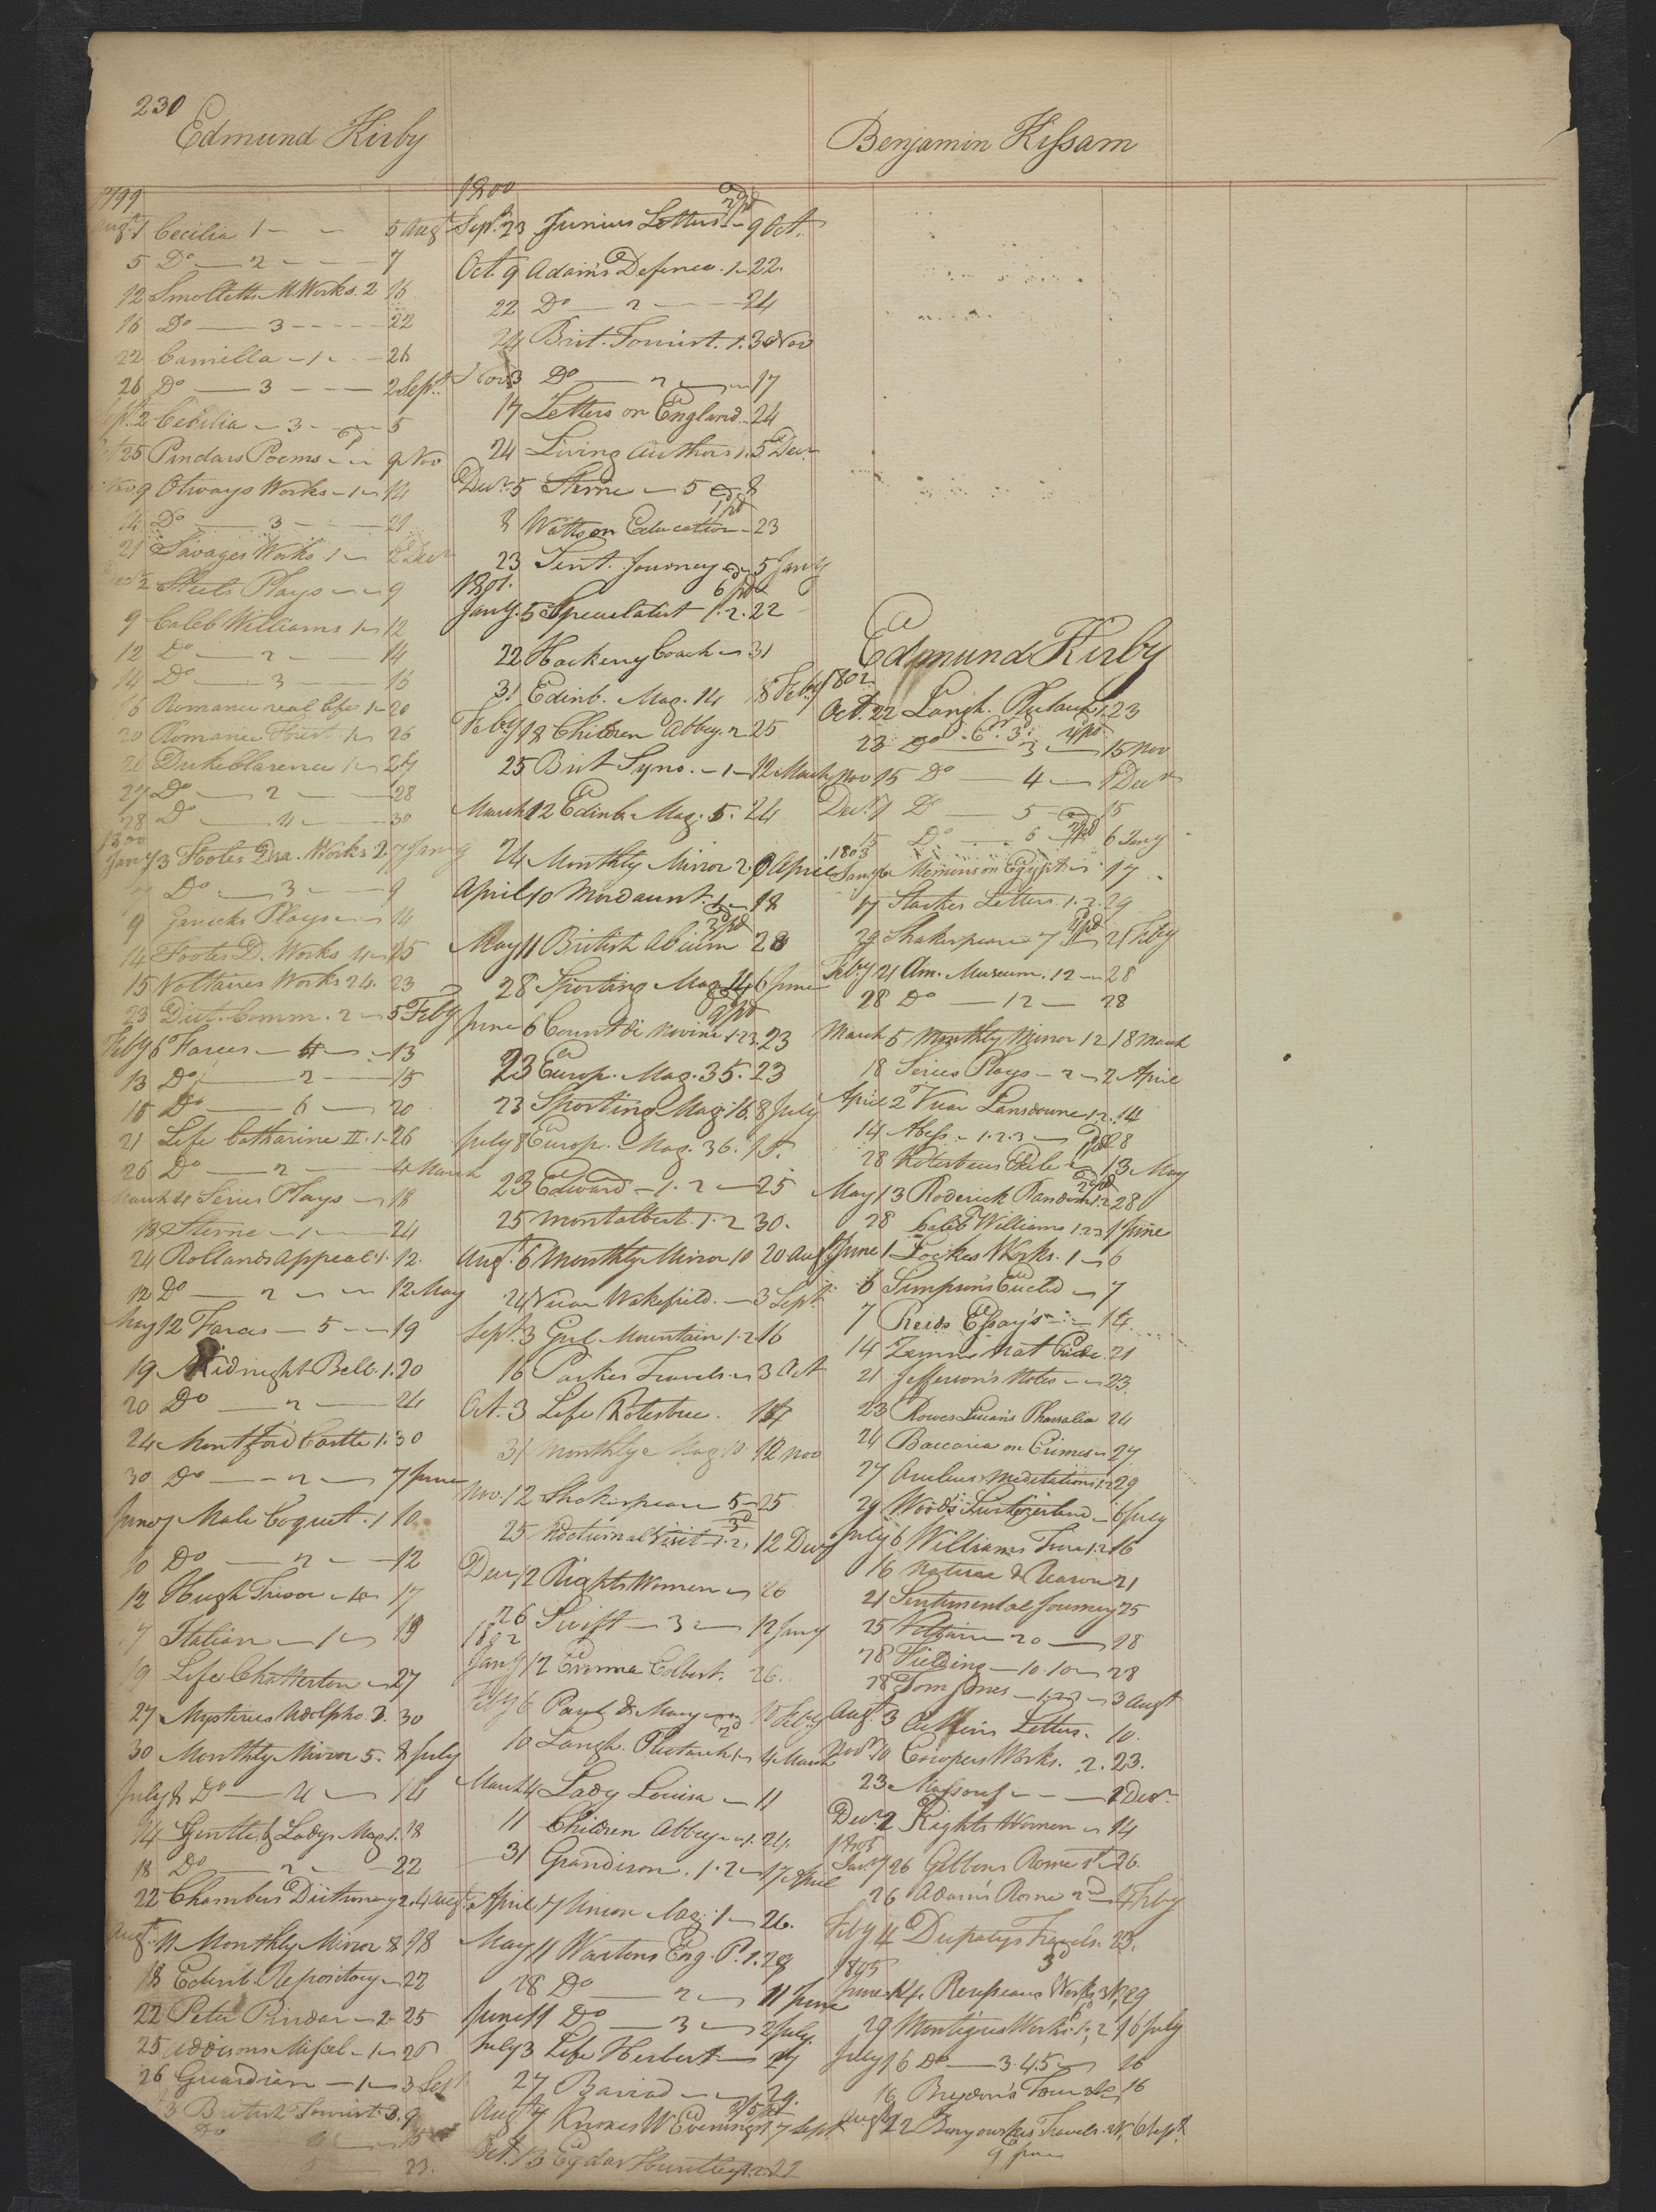 230
Edmund Kirby
1799
Augt. 1 Cecilia 1 5 Augt
5 Do 2 7
12 Smolletts M. Works. 2 16
16 Do 3 22
22 Camilla 1 26
26 Do 3 2 Sept.
Sept. 2 Cecilia 3 5
25 Pindars Poems 9 Nov
Nov 9 Otways Works 1 14
14 Do 3 21
21 Savages Works 1 2 Decr
Decr 2 Plays 9
9 Caleb Williams 1 12
12 Do 2 14
14 Do 3 16
16 Romance real life 1 20
20 Romance 1 26
26 Duke Clarence 1 27
27 Do 2 28
28 Do 4 30
1800
Jany 3 Footes Dra. Works 2 7 Jany
7 Do 3 9
9 Garricks Plays 14
14 Footes D. Works 4 15
15 Voltaires Works 24. 23
23 Dict. Comm. 2 5 Feby
Feby 6 Farces 4 13
13 Do 2 15
15 Do 6 20
21 Life Catharine II. 1 26
26 Do 2 4 March
March 4 Series Plays 18
18 Sterne 1 24
24 Rollands Appeal 1. 12.
12 Do 2 12 May
May 12 Farces 5 19
19 Midnight Bell. 1. 20
20 Do 2 24
24 Montford Castle 1. 30
30 Do 2 7 June
June 7 Male Coquet. 1 10
10 Do 2 12
12 Hugh Trevor 4 17
17 Italian 1 19
19 Life Chatterton 27
27 Mysteries Udolpho. 3. 30
30 Monthly Mirror 5. 8 July
July 8 Do 4 14
14 Gentle. & Ladys Mag. 1. 18
18 Do 2 22
22 Chambers Dictionary 2. 4 Augt.
Augt. 11 Monthly Mirror 8 18
18 Edinb. Repository 22
22 Peter Pindar 2 25
25 Addisons Miscel. 1 26
26 Guardian 1 3 Sept
3 British Tourist. 3. 9
Do 4 15
23.
1800
Sept. 23 Junius Letters 1 2 pd 9 Oct.
Oct. 9 Adam's Defence. 1 22.
22 Do 2 24
24 Brit. Tourist. 1. 3 Nov
Nov 3 Do 2 17
17 Letters on England 24
24 Living Authors 1. 5 Decr
Decr. 5 Sterne 5 8
8 Watts on Education 1 pd 23
23 Sent. Journey 5 Jany
1801.
Jany. 5 Speculatist 1. 2. 6 pd 22
22 Hackney Coach 31
31 Edinb. Mag. 14 18 Feby
Feby 18 Children Abbey. 2 25
25 Brit Syno. 1 12 March
March 12 Edinb. Mag. 5. 24
24 Monthly Mirror 2. 9 April
April 10 Mordaunt. 1 18
May 11 British Album 2 pd 28
28 Sporting Mag. 14 6 June
June 6 Count di Novini 1. 2 3. 2 pd 23
23 Europ. Mag. 35. 23
23 Sporting Mag. 16. 8 July
July 8 Europ. Mag. 36. 15.
23 Edward 1. 2 25
25 Montalbert. 1. 2 30.
Augt. 6 Monthly Mirror 10 20 Augt
24 Vicar Wakefield. 3 Sept.
Sept. 3 Grl. Mountain 1. 2 16
16 Parkes Travels 3 Oct
Oct. 3 Life Kotzebue. 14
31 Monthly Mag. 10. 12 Nov
Nov. 12 Shakespeare 5 25
25 Nocturnal Visit 1. 2. 12 Decr
Decr 12 Rights Women 26
26 Swift 3 12 Jany
1802
Jany 12 Emma Colbert. 26.
Feby 6 Paul & Mary 10 Feby
10 Langh. Plutarch 1 4 March
March 4 Lady Louisa 11
11 Children Abbey 1. 24.
31 Grandison. 1. 2 17 April
April 17 Union Mag. 1 26.
May 11 Wartons Eng. P. 1. 28
28 Do 2 11 June
June 11 Do 3 2 July.
July 3 Life Herbert 27
27 Barrad 29.
Augt 7 Knoxes W Evenings 17 Sept
Oct. 13 Edgar Huntley 1. 2. 22
Benjamin Kissam
Edmund Kirby
1802
Oct. 22 Langh. Plutarch 1. 23
23 Do 3 15 Nov
Nov 15 Do 4 1 Decr
Decr. 1 Do 5 15
15 Do 6 2 pd 6 Jany
1803
Jany 6 Memoirs on Egypt 17
17 Starkes Letters. 1. 2. 29
29 Shakespeare 7 21 Feby
Feby 21 Am. Museum. 12 28
28 Do 12 28
March 5 Monthly Mirror 12 18 March
18 Series Plays 2 2 April
April 2 Vicar Lansdowne 1. 2. 14
14 Abess 1. 2. 3 28
28 Kotzebues Exile 13 May
May 13 Roderick Random 1. 2. 28
28 Caleb Williams 1. 2 3 1 June
June 1 Lockes Works. 1 6
6 Simpson's Euclid 7
7 Reids Essay's 14.
14 Zimm. Nat Pride. 21
21 Jefferson's Notes 23.
23 Rowes Lucan's Pharsalia 24
24 Baccaria on Crimes 27
27 Aurelius Meditations 1. 2 29
29 Wood's Switzerland 6 July
July 6 Williams Tour 1. 2 16
16 Nature & Reason 21
21 Sentimental Journey 25
25 Voltaire 20 28
28 Fielding 10. 10 28
28 Tom Jones 1. 2. 3 3 Augt
Augt. 3 Aitkins Letters. 10.
Novr. 10 Cowpers Works. 2. 23.
23 Massouf 2 Decr.
Decr. 2 Rights Women 14
1805
Jany 26 Gibbons Rome 1st 26.
26 Adam's Rome 2nd 4 Feby
Feby 4 Depatys Travels. 23.
1805
June 14. Rousseaus Works 3d, 29
29 Montagues Works. 1. 2 16 July
July 16 Do 3. 4. 5 16
16 Brydon's Tour 16
Augt 22 Benyouskes Travels. 6 Sept.